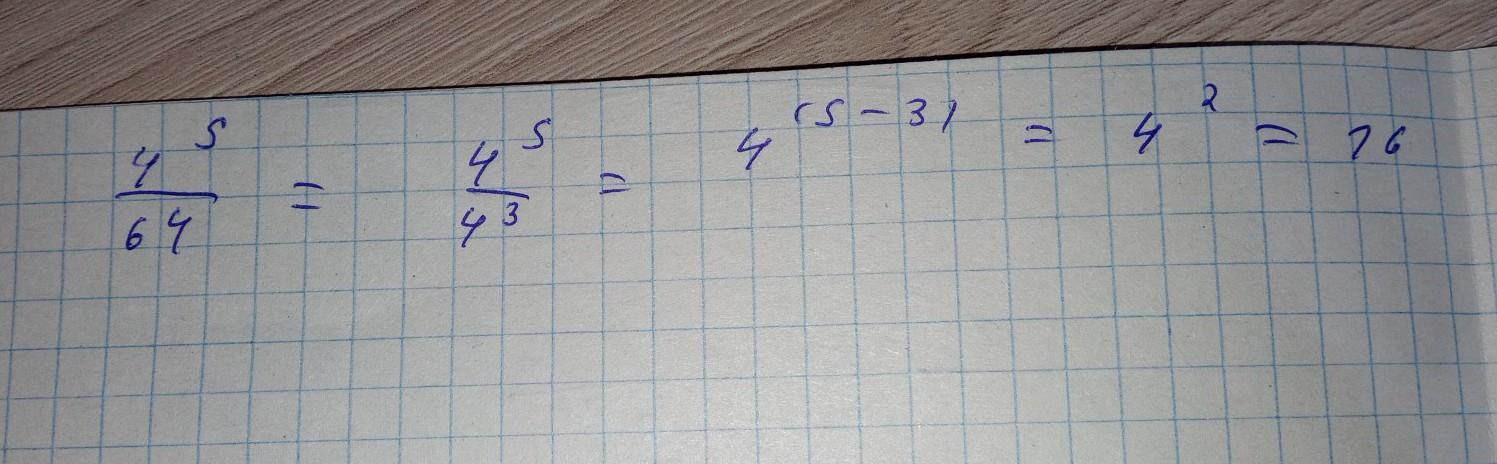 4^5/64 = 4^5/4^3 = 4^(5-3) = 4^2 = 16